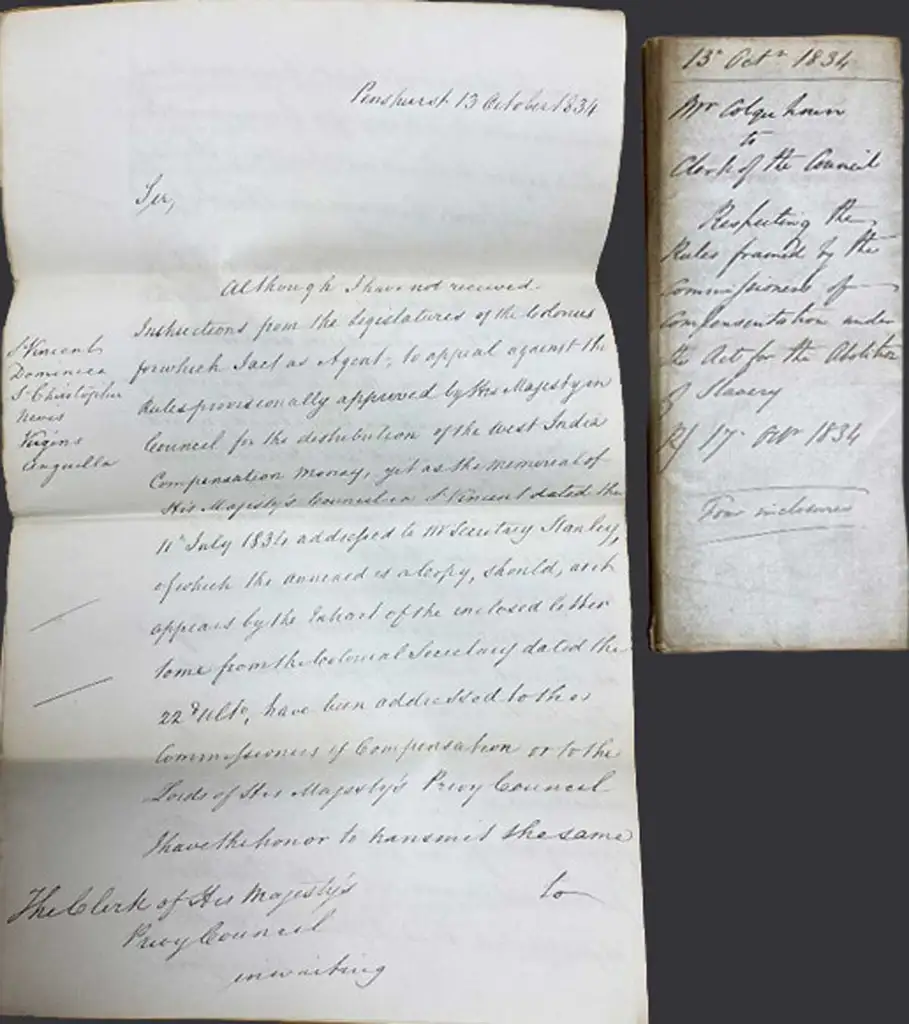 Penshurst 13 October 1834
Sir,
Although I have not received
Instructions from the Legislatures of the Colonies
for which I act as Agent, to appeal against the
Rules provisionally approved by His Majesty in
Council for the distribution of the West India
Compensation Money, yet as the memorial of
His Majesty's Council in St Vincent dated the
11th July 1834 addressed to Mr Secretary Stanley,
of which the annexed is a Copy, should, as it
appears by the Extract of the inclosed letter
to me from the Colonial Secretary dated the
22d Ulto, have been addressed to the
Commissioners of Compensation or to the
Lords of His Majesty's Privy Council
I have the honor to transmit the same
to
St Vincent
Dominica
St Christopher
Nevis
Virgins
Anguilla
The Clerk of His Majesty's
Privy Council
in waiting
13 Octr 1834
Mr Colquhoun
to
Clerk of the Council
Respecting the
Rules framed by the
Commissioners of
Compensation under
the Act for the Abolition
of Slavery
17 Octr 1834
Four inclosures